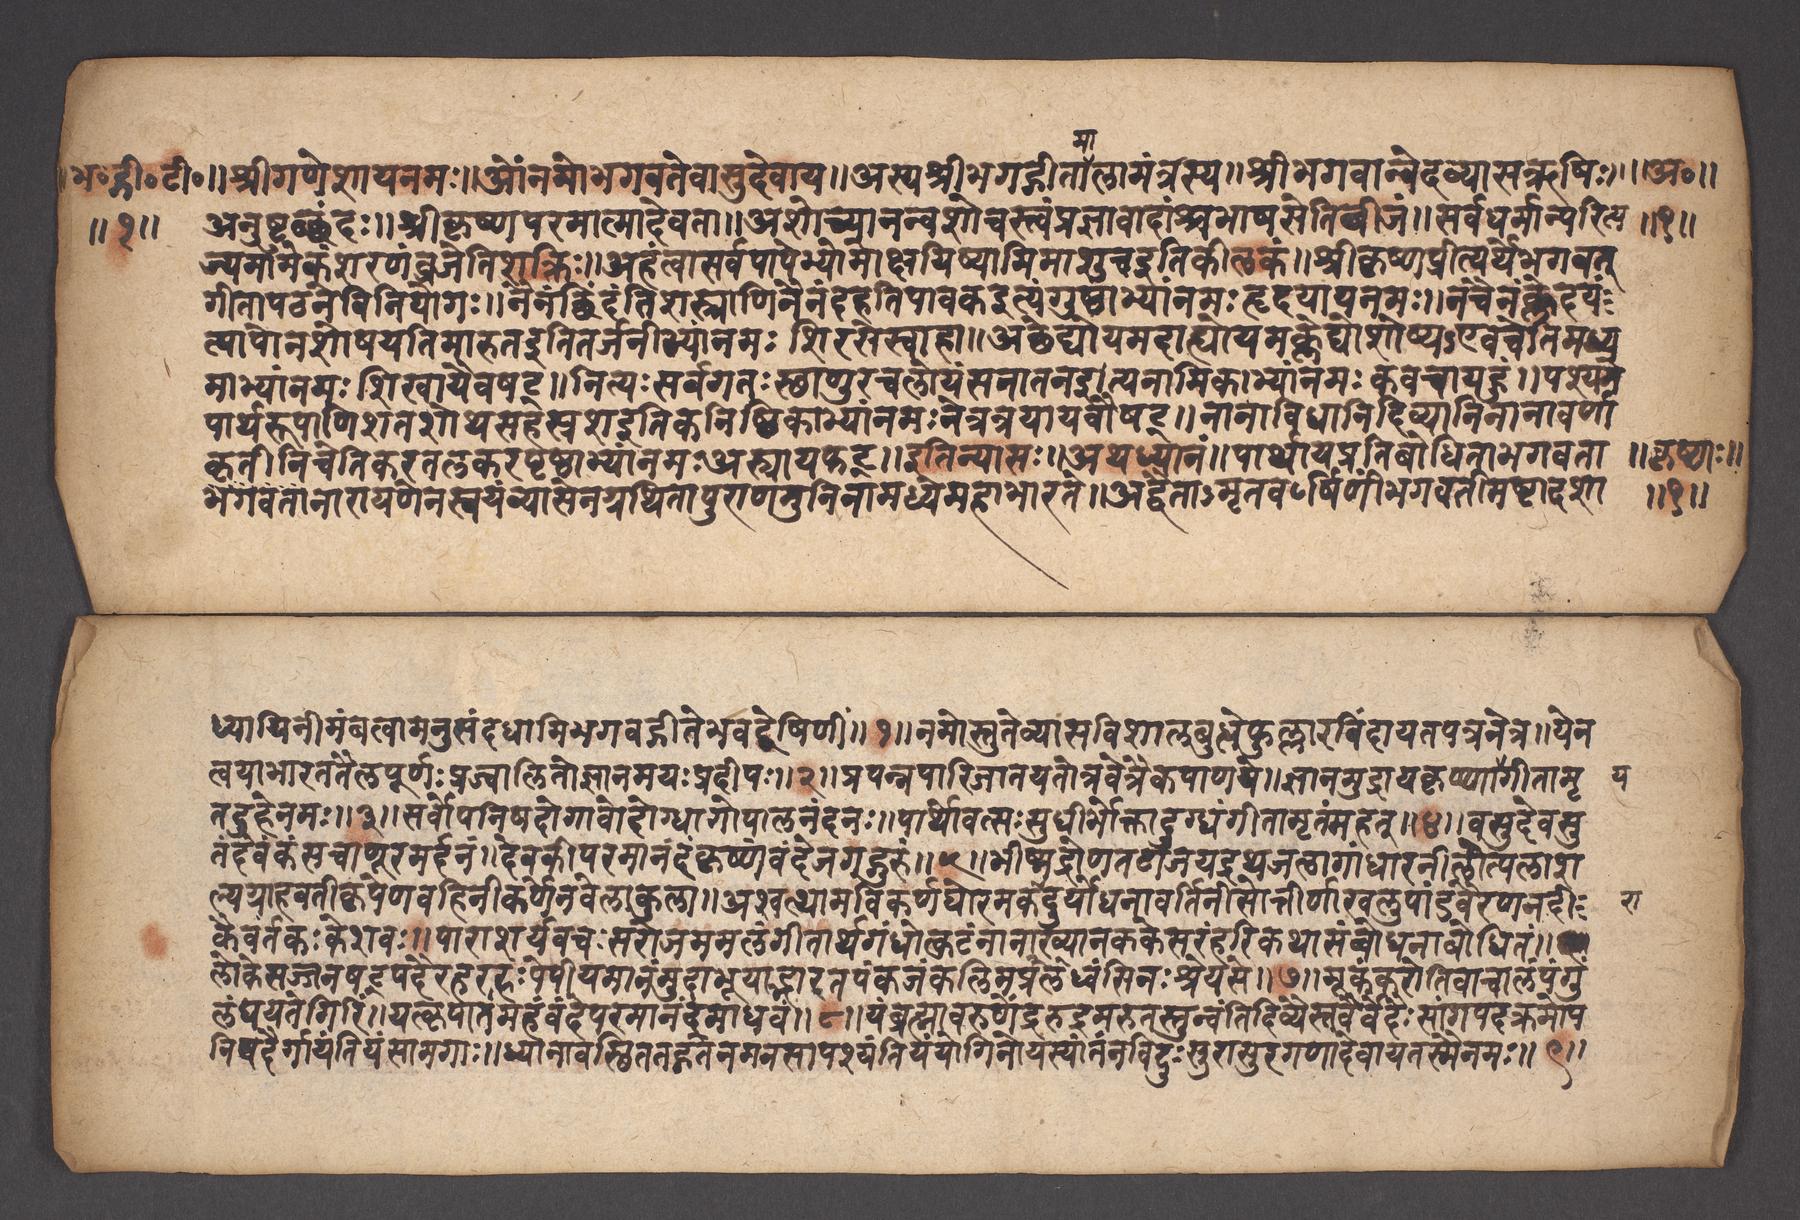 मा
॥भ॰द्गी॰टी॰॥श्रीगणेशायनमः॥ओंनमोभगवतेवासुदेवाय॥अस्यश्रीभगद्गीतालामंत्रस्य॥श्रीभगवान्वेदव्यासऋषिः॥॥अ॰॥
॥१॥ अनुष्टुच्छंदः॥श्रीकृष्णपरमात्मादेवता॥अशोच्यानन्वशोचस्त्वंप्रज्ञावादांश्चभाषसेतिब्बीजं॥सर्वधर्मान्परित्य ॥१॥
ज्यमामेकंशरणंव्रजेतिशक्तिः॥अहंत्वासर्वपापेभ्योमोक्षयिष्यामिमाशुचइतिकीलकं॥श्रीकृष्णप्रीत्यर्थेभगवत्
गीतापठनेविनियोगः॥नैनंछिंदंतिशस्त्राणिनैनंदहतिपावकइत्यंगुष्ठाभ्यांनमः हृदयायनमः॥नचैनंक्लेदयं
त्यापोनशोषयतिमारुतइतितर्जनीभ्यांनमः शिरसेस्वाहा॥अछेद्योयमदाह्योयमक्लेद्योशोष्यऽएवचेतिमध्य
माभ्यांनमः शिखायैवषट्॥नित्यः सर्वगतः स्छाणुरचलोयंसनातनइत्यनामिकाभ्यांनमः कवचायहुं॥पश्यमे
पार्थरूपाणिशतशोथसहस्त्रशइतिकनिष्ठिकाभ्यांनमः नेत्रत्रयायवौषट्॥नानाविधानिदिव्यानिनानावर्णा
कृतीनिचेतिकरतलकरपृष्ठाभ्यांनमः अस्त्रायफट्॥इतिन्यासः॥अथध्यानं॥पार्थायप्रतिबोधिताभगवता ॥कृष्णः॥
भगवतानारायणेनस्वयंव्यासेनग्रथितापुराणमुनिनामध्येमहाभारते॥अद्वैताऽमृतवर्षिणींभगवतीमष्टादशा ॥१॥
ध्यायिनीमंबत्वामनुसंदधामिभगवद्गीतेभवद्वेषिणीं॥१॥नमोस्तुतेव्यासविशालबुद्धेफुल्लारविंदायतपत्रनेत्र॥येन
त्वयाभारततैलपूर्णः प्रज्वालितोज्ञानमयः प्रदीपः॥२॥प्रपन्नपारिजातयतोत्रवेत्रैकपाणये॥ज्ञानमुद्रायकृष्णागीतामृ य
तदुहेनमः॥३॥सर्वोपनिषदोगावोदोग्धागोपालनंदनः॥पार्थोवत्सः सुधीर्भोक्तादुग्धंगीतामृतंमहत्॥४॥वसुदेवसु
तंदेवंकंसचाणुरमर्द्दनं॥देवकीपरमानंदंकृष्णंवंदेजगद्गुरुं॥५॥भीष्मद्रोणतटाजयद्रथजलागांधारनीलोत्पलाश
ल्यग्राहवतीकृपेणवहिनीकर्णेनवेलाकुला॥अश्वत्थामविकर्णघोरमकदुर्योधनावर्तिनीसोत्तीर्णाखलुपांडवैरणनदी रा
कैवर्तकः केशवः॥पाराशर्यवचः सरोजममलंगीतार्थगंधोत्कटंनानाख्यानककेसरंहरिकथासंब्बोधनाबोधितं॥
लोकेसज्जनषट्पदैरहरहः पेपीयमानंमुदाभूयाद्भारतपंकजंकलिमप्रलंध्वंसिनः श्रेयसे॥७॥मूकंकरोतिवाचालंपंगुं
लंघयतेगिरिं॥यत्कृपातमहंवंदेपरमानंदमाधवं॥८॥यंब्रह्मावरुणेंद्ररुद्रमरुतस्तुन्वंतिदिव्यैस्तवैर्वेदैः सांगपदक्रमोप
निषदैर्गायंतियंसामगाः॥ध्यानावस्छिततद्गतेनमनसापश्यंतियंयोगिनोयस्यांतंनविदुः सुरासुरगणादेवायतस्मैनमः॥९॥